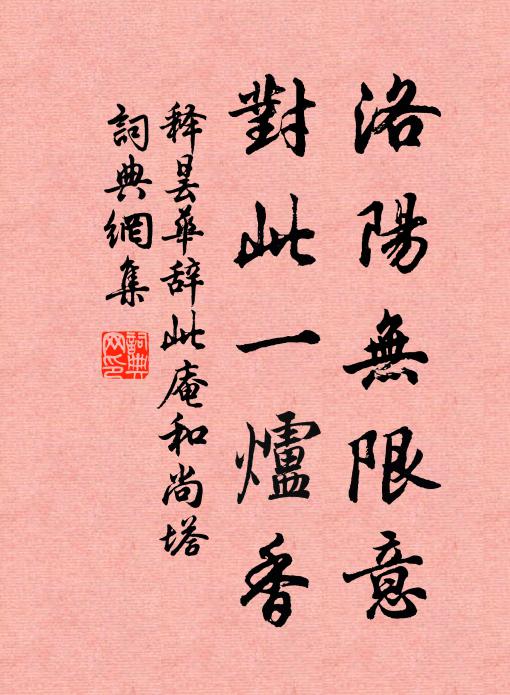 洛陽無限意
對此一爐香
释昙华辞此庵和尚塔
詞典網集
詞典网印